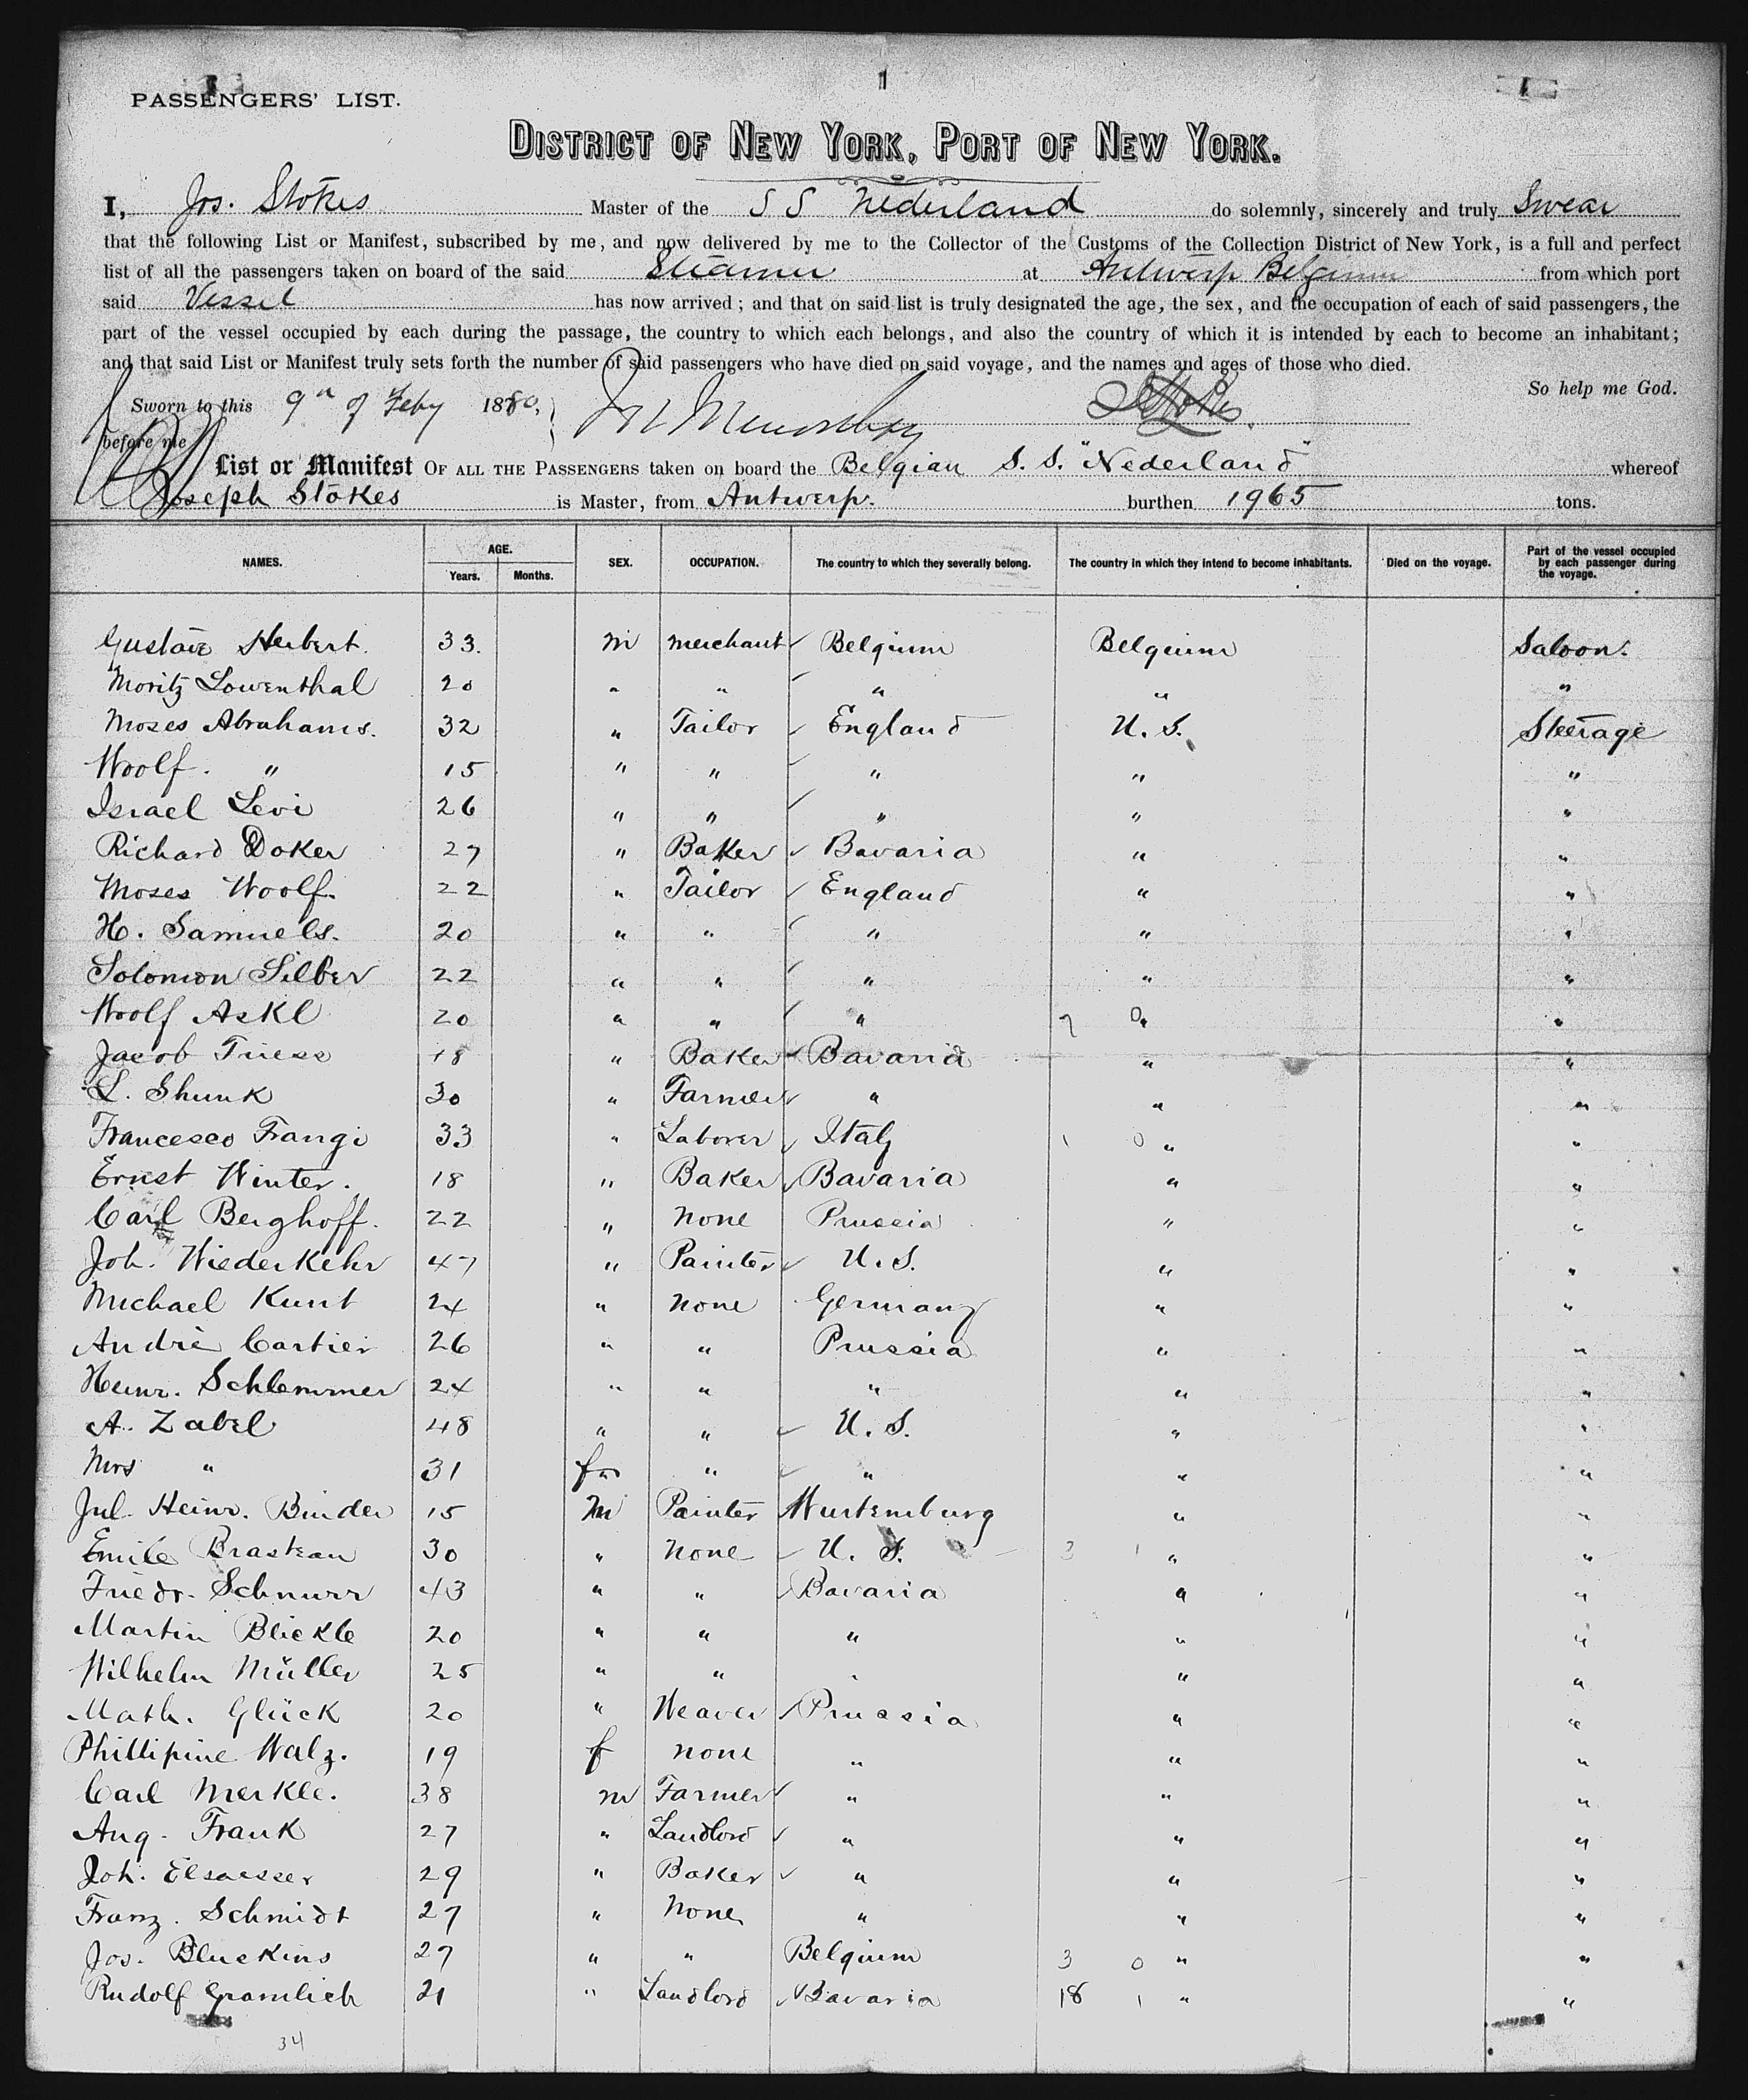 1
PASSENGERS' LIST.
DISTRICT OF NEW YORK, PORT OF NEW YORK.
I, Jos. Stokes Master of the S S Nederland do solemnly, sincerely and truly Swear
that the following List or Manifest, subscribed by me, and now delivered by me to the Collector of the Customs of the Collection District of New York, is a full and perfect
list of all the passengers taken on board of the said Steamer at Antwerp Belgium from which port
said Vessel has now arrived; and that on said list is truly designated the age, the sex, and the occupation of each of said passengers, the
part of the vessel occupied by each during the passage, the country to which each belongs, and also the country of which it is intended by each to become an inhabitant;
and that said List or Manifest truly sets forth the number of said passengers who have died on said voyage, and the names and ages of those who died.
So help me God.
Sworn to this 9th of Feby 1880,
before me
List or Manifest OF ALL THE PASSENGERS taken on board the Belgian S. S. "Nederland" whereof
Joseph Stokes is Master, from Antwerp. burthen 1965 tons.
NAMES. AGE. Years. Months. SEX. OCCUPATION. The country to which they severally belong. The country in which they intend to become inhabitants. Died on the voyage. Part of the vessel occupied by each passenger during the voyage.
Gustave Herbert. 33. m merchant Belgium Belgium Saloon.
Moritz Lowenthal 20 " " " " "
Moses Abrahams. 32 " Tailor England U. S. Steerage
Woolf. " 15 " " " " "
Israel Levi 26 " " " " "
Richard Doker 27 " Baker Bavaria " "
Moses Woolf. 22 " Tailor England " "
H. Samuels. 20 " " " " "
Solomon Silber 22 " " " " "
Woolf Askl 20 " " " 7 0 " "
Jacob Triess 18 " Baker Bavaria " "
L. Shunk 30 " Farmer " " "
Francesco Frangi 33 " Laborer Italy 1 0 " "
Ernst Winter. 18 " Baker Bavaria " "
Carl Berghoff. 22 " None Prussia " "
Joh. Wiederkehr 47 " Painter U. S. " "
Michael Kunt 24 " None Germany " "
Andrè Cartier 26 " " Prussia " "
Heinr. Schlemmer 24 " " " " "
A. Zabel 48 " " U. S. " "
Mrs " 31 fm " " " "
Jul. Heinr. Binder 15 m Painter Wurtemburg " "
Emile Brasteau 30 " None U. S. 3 1 " "
Friedr. Schnurr 43 " " Bavaria " "
Martin Blickle 20 " " " " "
Wilhelm Müller 25 " " " " "
Math. Glück 20 " Weaver Prussia " "
Phillipine Walz. 19 f none " " "
Carl Merkle. 38 m Farmer " " "
Aug. Frank 27 " Landlord " " "
Joh. Elsaesser 29 " Baker " " "
Franz. Schmidt 27 " None " " "
Jos. Bluekins 27 " " Belgium 3 0 " "
Rudolf Gramlich 21 " Landlord Bavaria 18 1 " "
34